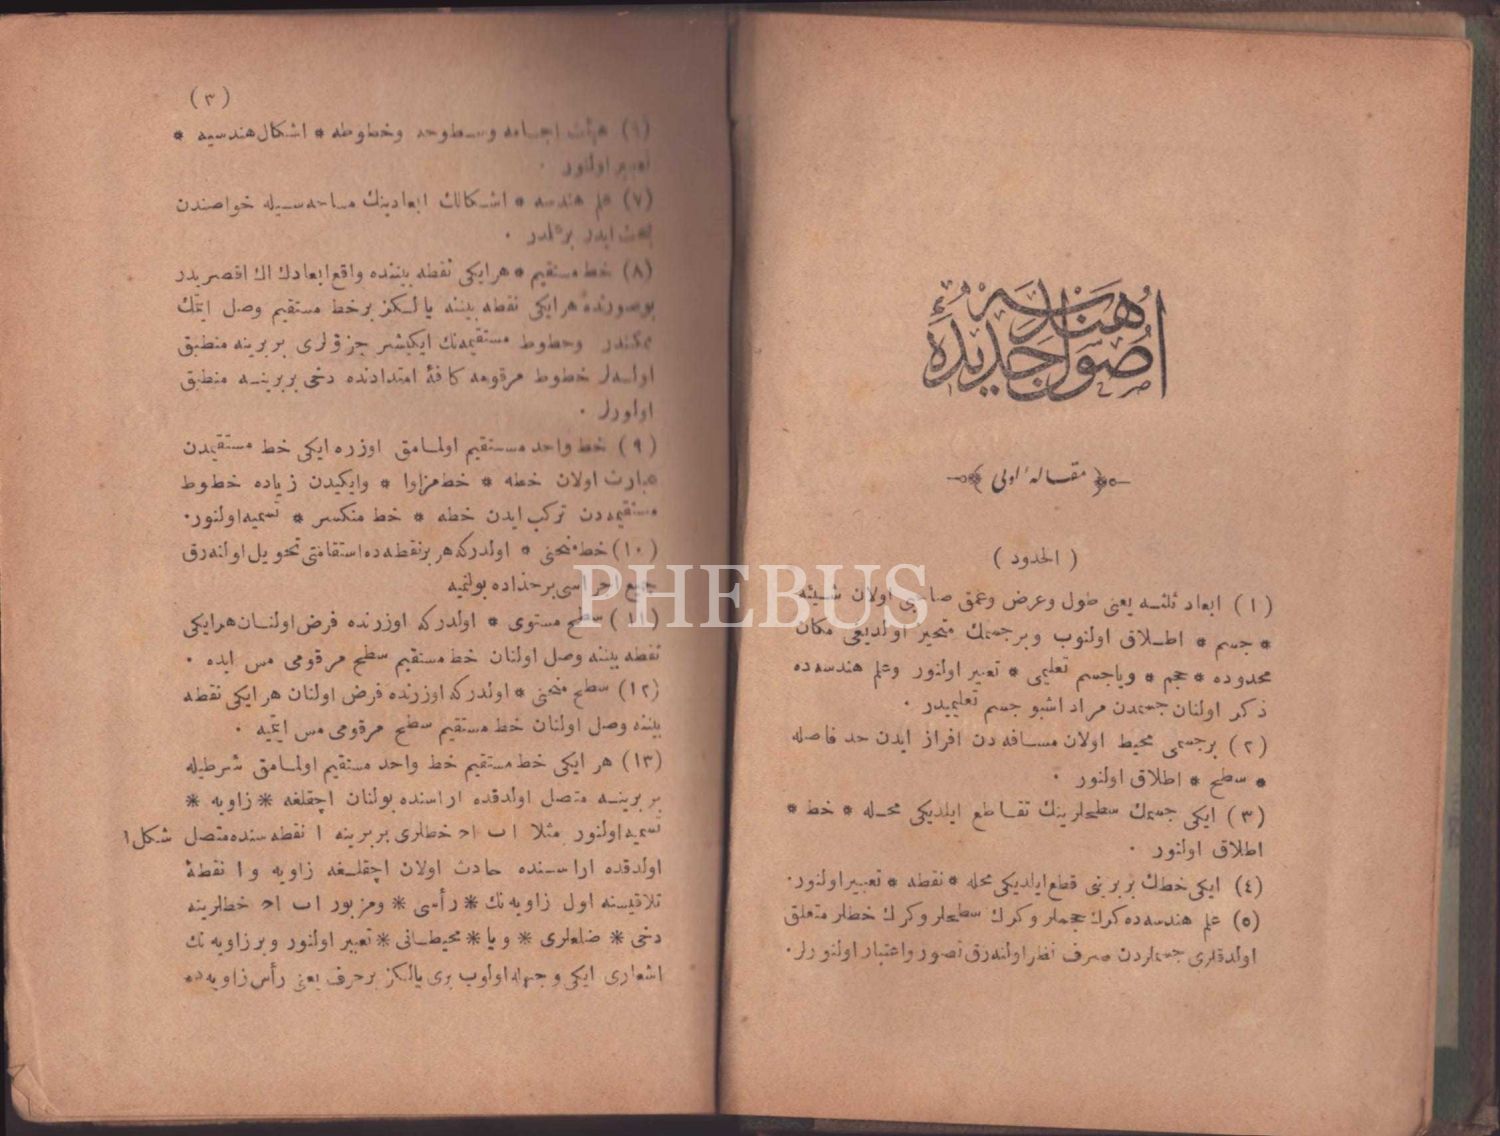 اصول جديدۀ هندسه
مقالۀ اولى
( الحدود )
(١) ابعاد ثلثه يعنى طول وعرض وعمق صاحبى اولان شيئه
* جسم * اطلاق اولنوب وبرجسمك متحيز اولديغى مكان
محدوده * حجم * وياجسم تعليمى * تعبير اولنور وعلم هندسه ده
ذكر اولنان جسمدن مراد اشبو جسم تعليميدر .
(٢) برجسمى محيط اولان مسافه دن افراز ايدن حد فاصله
* سطح * اطلاق اولنور .
(٣) ايكى جسمك سطحلرينك تقاطع ايلديكى محله * خط *
اطلاق اولنور .
(٤) ايكى خطك بربرينى قطع ايلديكى محله * نقطه * تعبير اولنور.
(٥) علم هندسه ده كرك حجملر وكرك سطحلر وكرك خطلر متعلق
اولدقلرى جسملردن صرف نظر اولنه رق تصور واعتبار اولنورلر.
(٣)
(٦) هيأت اجسامه وسطوحه وخطوطه * اشكال هندسيه *
تعبير اولنور .
(٧) علم هندسه * اشكالك ابعادينك مساحه سيله خواصندن
بحث ايدر برعلمدر .
(٨) خط مستقيم * هر ايكى نقطه بيننده واقع ابعادك اك اقصريدر
بوصورتده هر ايكى نقطه بيننه يالكز برخط مستقيم وصل ايتمك
ممكندر وخطوط مستقيمه نك ايكيشر جزؤلرى بربرينه منطبق
اولسه لر خطوط مرقومه كافۀ امتدادنده دخى بربرينه منطبق
اولورلر .
(٩) خط واحد مستقيم اولمامق اوزره ايكى خط مستقيمدن
عبارت اولان خطه * خط مزاوا * وايكيدن زياده خطوط
مستقيمه دن تركب ايدن خطه * خط منكسر * تسميه اولنور.
(١٠) خط منحنى * اولدركه هر برنقطه ده استقامتى تحويل اولنه رق
جميع اجزاسى برحذاده بولنميه
(١١) سطح مستوى * اولدركه اوزرنده فرض اولنان هر ايكى
نقطه بيننه وصل اولنان خط مستقيم سطح مرقومى مس ايده .
(١٢) سطح منحنى * اولدركه اوزرنده فرض اولنان هر ايكى نقطه
بيننه وصل اولنان خط مستقيم سطح مرقومى مس ايتميه .
(١٣) هر ايكى خط مستقيم خط واحد مستقيم اولمامق شرطيله
بربرينه متصل اولدقده اراسنده بولنان اچقلغه * زاويه *
تسميه اولنور مثلا ا ب ا ج خطلرى بربرينه ا نقطه سنده متصل شكل ١
اولدقده اراسنده حادث اولان اچقلغه زاويه و ا نقطۀ
تلاقيسنه اول زاويه نك * رأسى * ومزبور ا ب ا ج خطلرينه
دخى * ضلعلرى * ويا * محيطانى * تعبير اولنور وبرزاويه نك
اشعارى ايكى وجهله اولوب برى يالكز برحرف يعنى رأس زاويه ده
PHEBUS